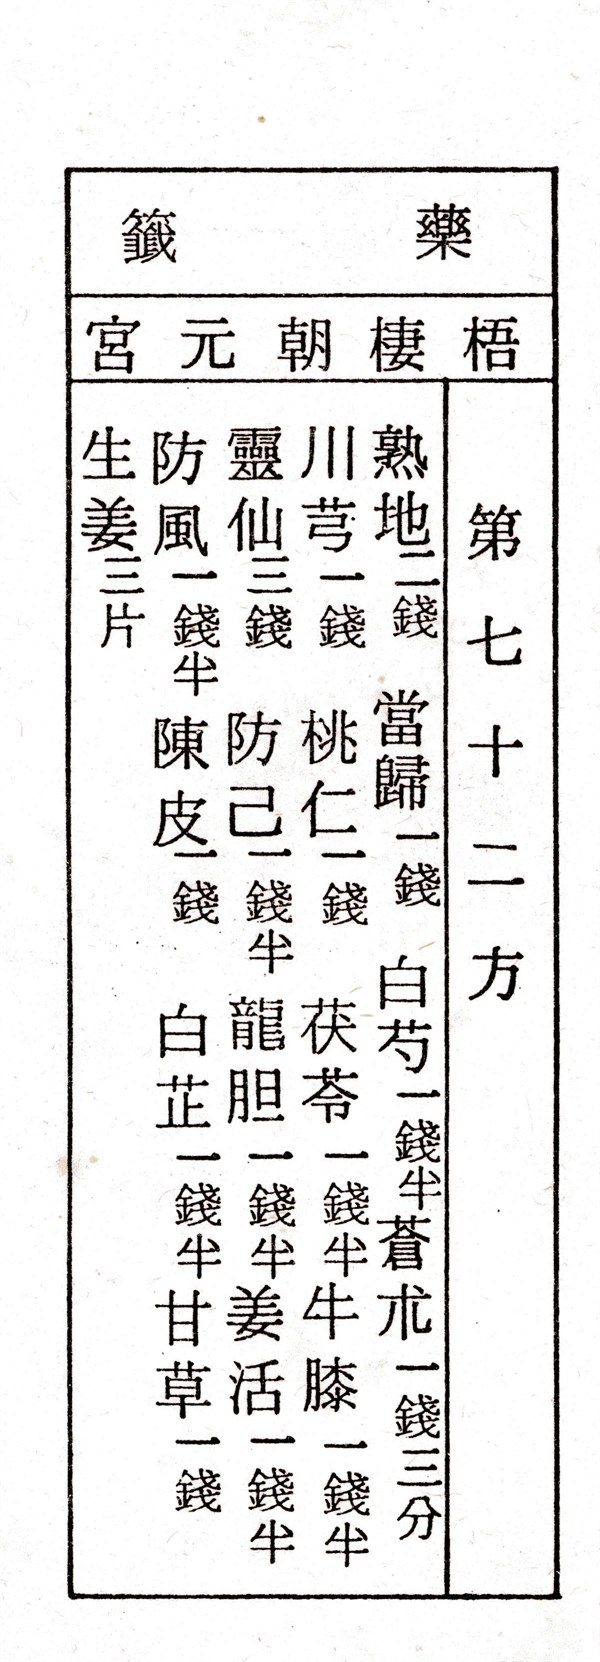 藥籤
梧棲朝元宮
第七十二方
熟地二錢 當歸一錢 白芍一錢半 蒼朮一錢三分
川芎一錢 桃仁一錢 茯苓一錢半 牛膝一錢半
靈仙三錢 防己一錢半 龍胆一錢半 姜活一錢半
防風一錢半 陳皮一錢 白芷一錢半 甘草一錢
生姜三片